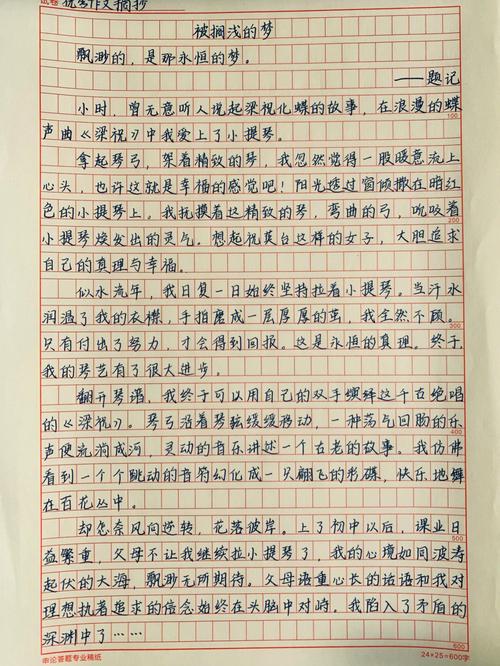 试卷 优秀作文摘抄
被搁浅的梦
飘渺的，是那永恒的梦。
——题记
小时，曾无意听人说起梁祝化蝶的故事，在浪漫的蝶
100
声曲《梁祝》中我爱上了小提琴。
拿起琴弓，架着精致的琴，我忽然觉得一股暖意流上
心头，也许这就是幸福的感觉吧！阳光透过窗倾撒在暗红
色的小提琴上。我抚摸着这精致的琴，弯曲的弓，吮吸着
200
小提琴焕发出的灵气。想起祝英台这样的女子，大胆追求
自己的真理与幸福。
似水流年，我日复一日始终坚持拉着小提琴。当汗水
润湿了我的衣襟，手拍磨成一层厚厚的茧，我全然不顾。
300
只有付出了努力，才会得到回报。这是永恒的真理。终于，
我的琴艺有了很大进步。
翻开琴谱，我终于可以用自己的双手演绎这千古绝唱
的《梁祝》。琴弓沿着琴弦缓缓移动，一种荡气回肠的乐
400
声便流淌成河，灵动的音乐讲述一个古老的故事。我仿佛
看到一个个跳动的音符幻化成一只翩飞的彩碟，快乐地舞
在百花丛中。
却怎奈风向逆转，花落彼岸。上了初中以后，课业日
500
益繁重，父母不让我继续拉小提琴了，我的心境如同波涛
起伏的大海，飘渺无所期待。父母语重心长的话语和我对
理想执着追求的信念始终在头脑中对峙。我陷入了矛盾的
深渊中了……
600
申论答题专业稿纸
24×25=600字